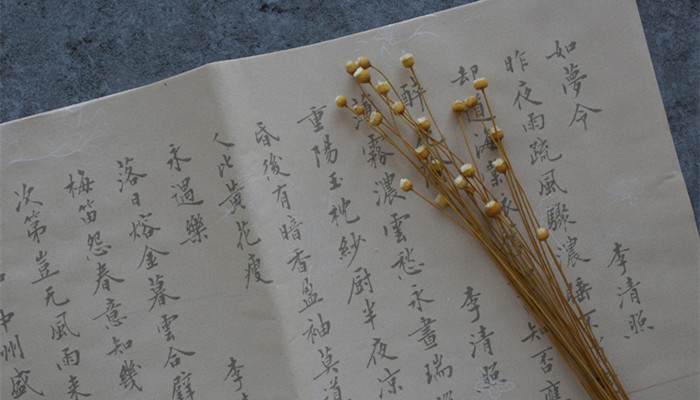 如夢令 李清照
昨夜雨疏風驟濃睡
却道海棠 知否應
醉 李清照
薄霧濃雲愁永晝瑞
重陽玉枕紗厨半夜涼
昏後有暗香盈袖莫道
人比黃花瘦
永遇樂 李
落日熔金暮雲合璧
梅笛怨春意知幾
次第豈无風雨來
中州盛